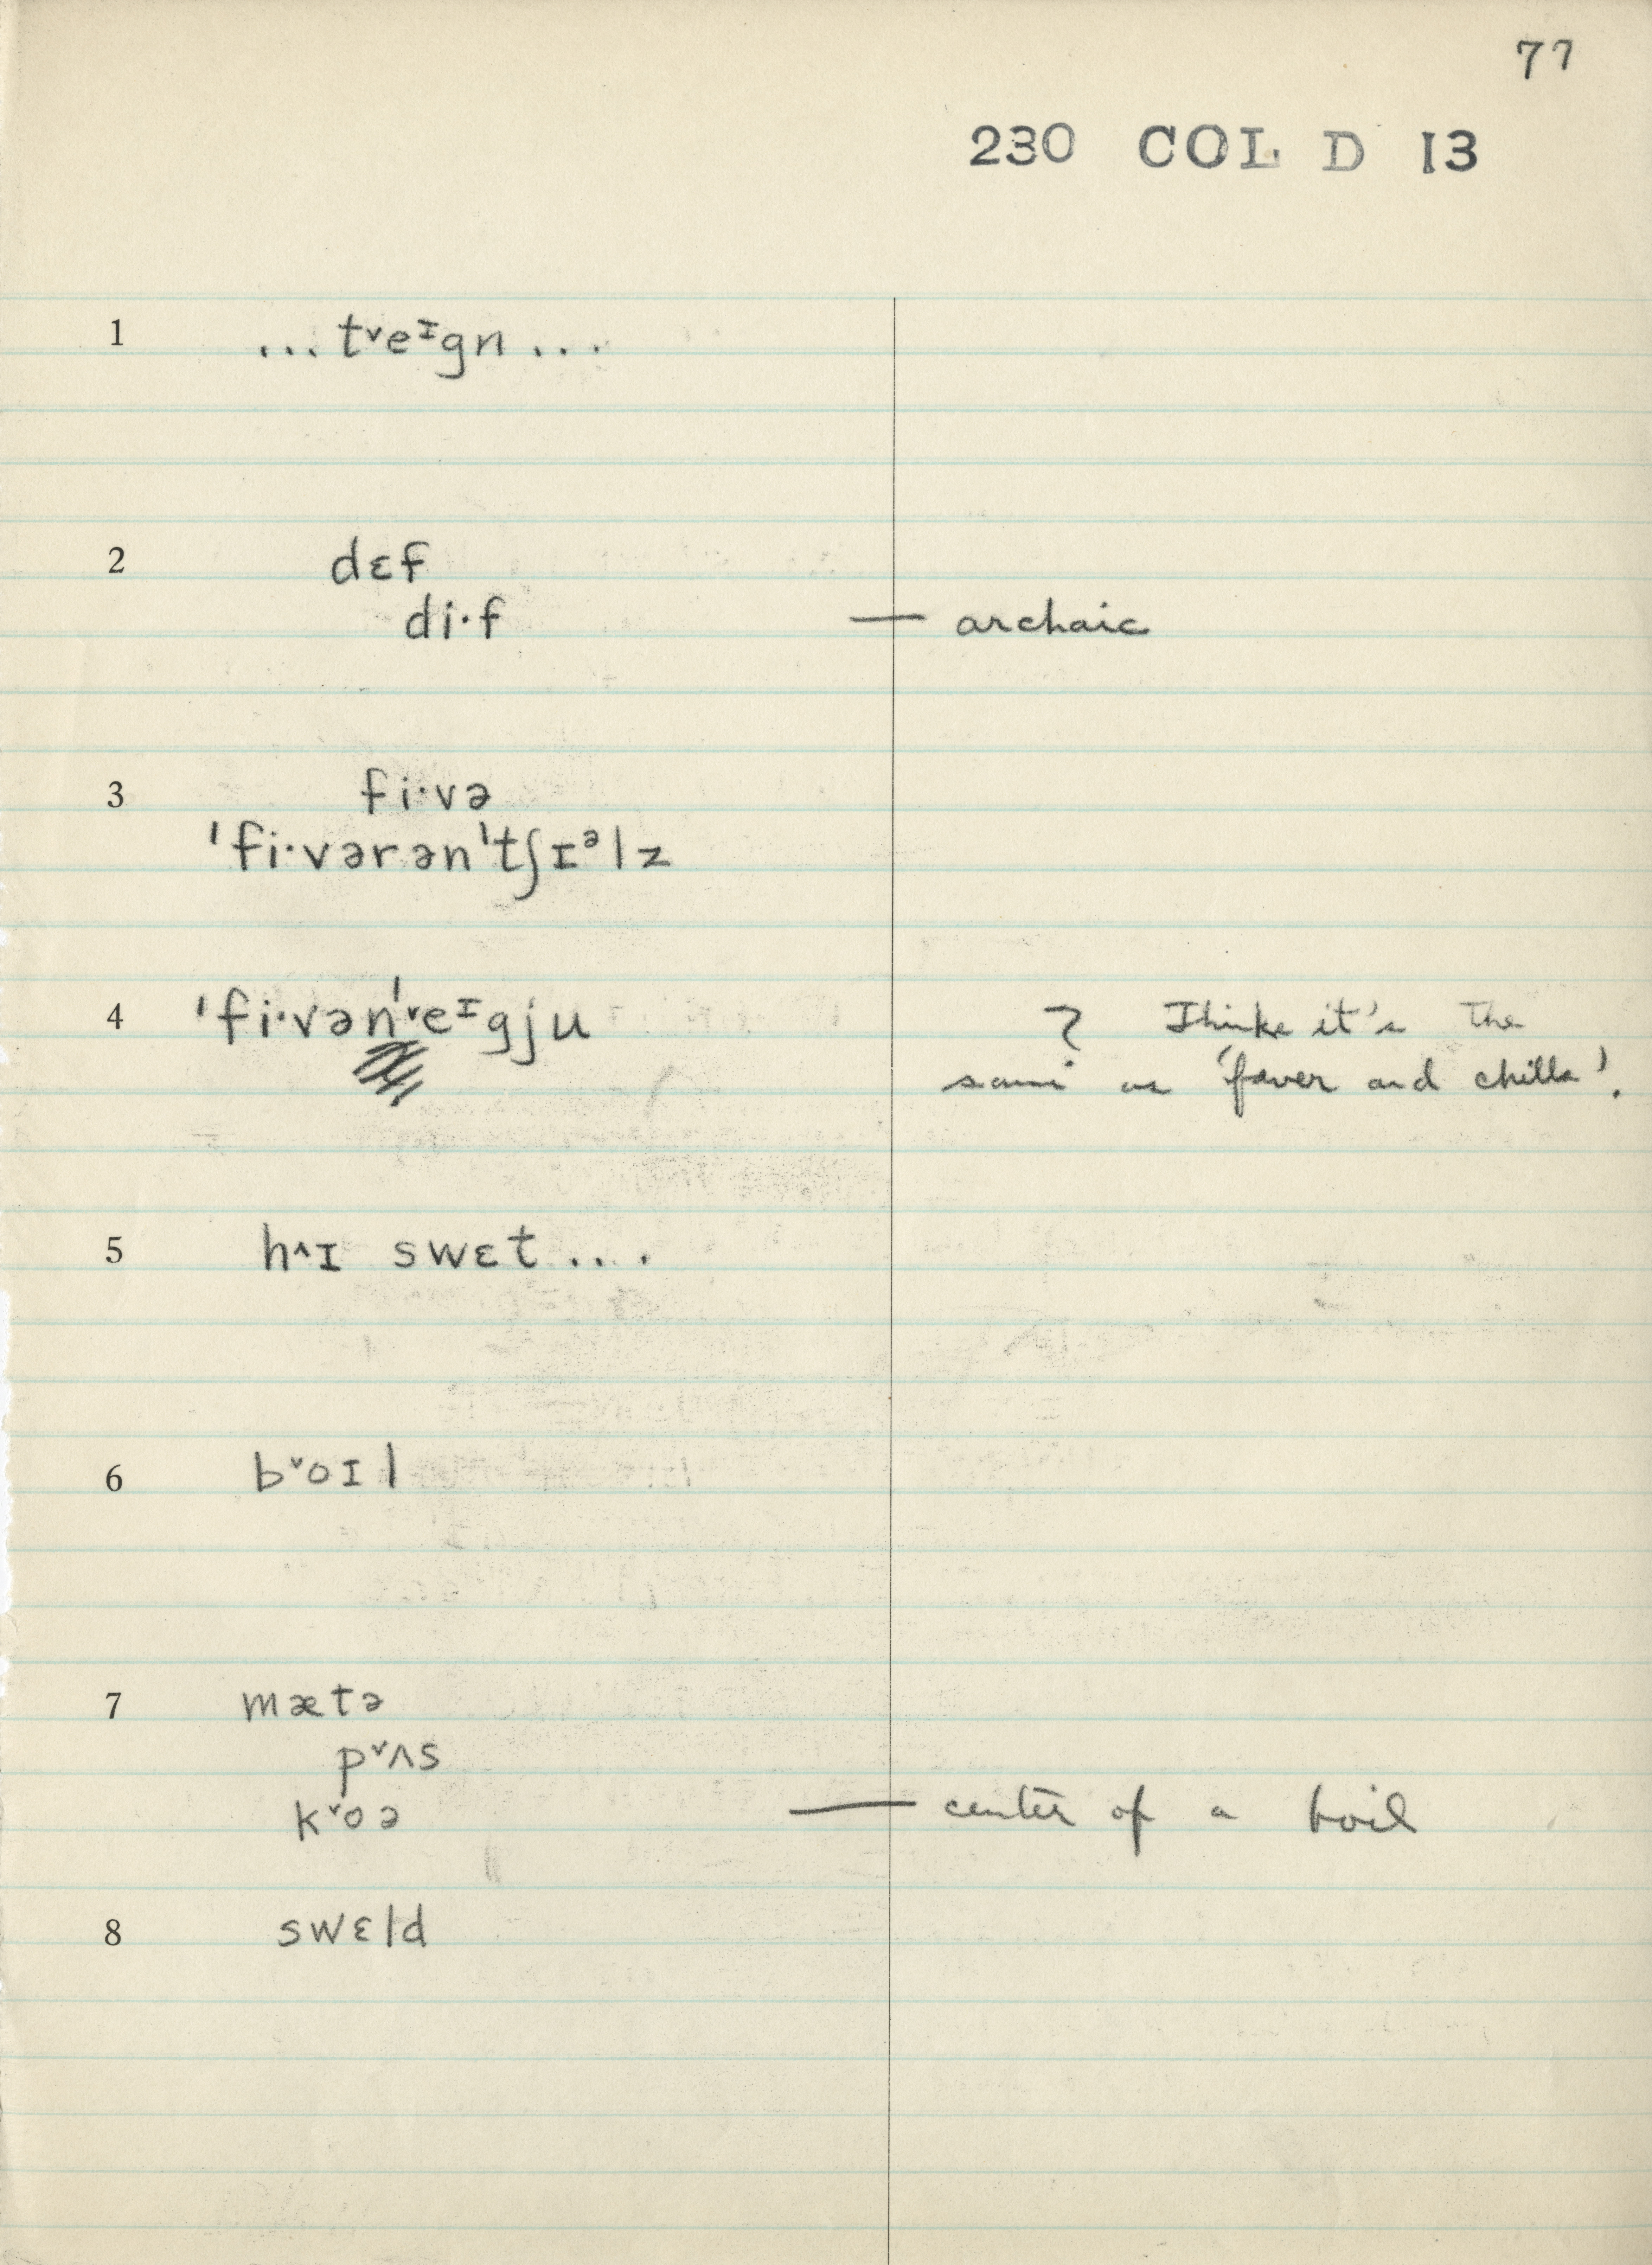 77
230 COL D 13
1 ... tˇeᶦgn ...
2 dɛf
di·f — archaic
3 fi·və
ˈfi·vərənˈtʃɪᵊlz
4 ˈfi·vənˈˇeᶦgju ? I think it's the
same as 'fever and chills'.
5 h^ɪ swɛt ....
6 bˇoɪl
7 mætə
pˇʌs
kˇoə — center of a boil
8 swɛld